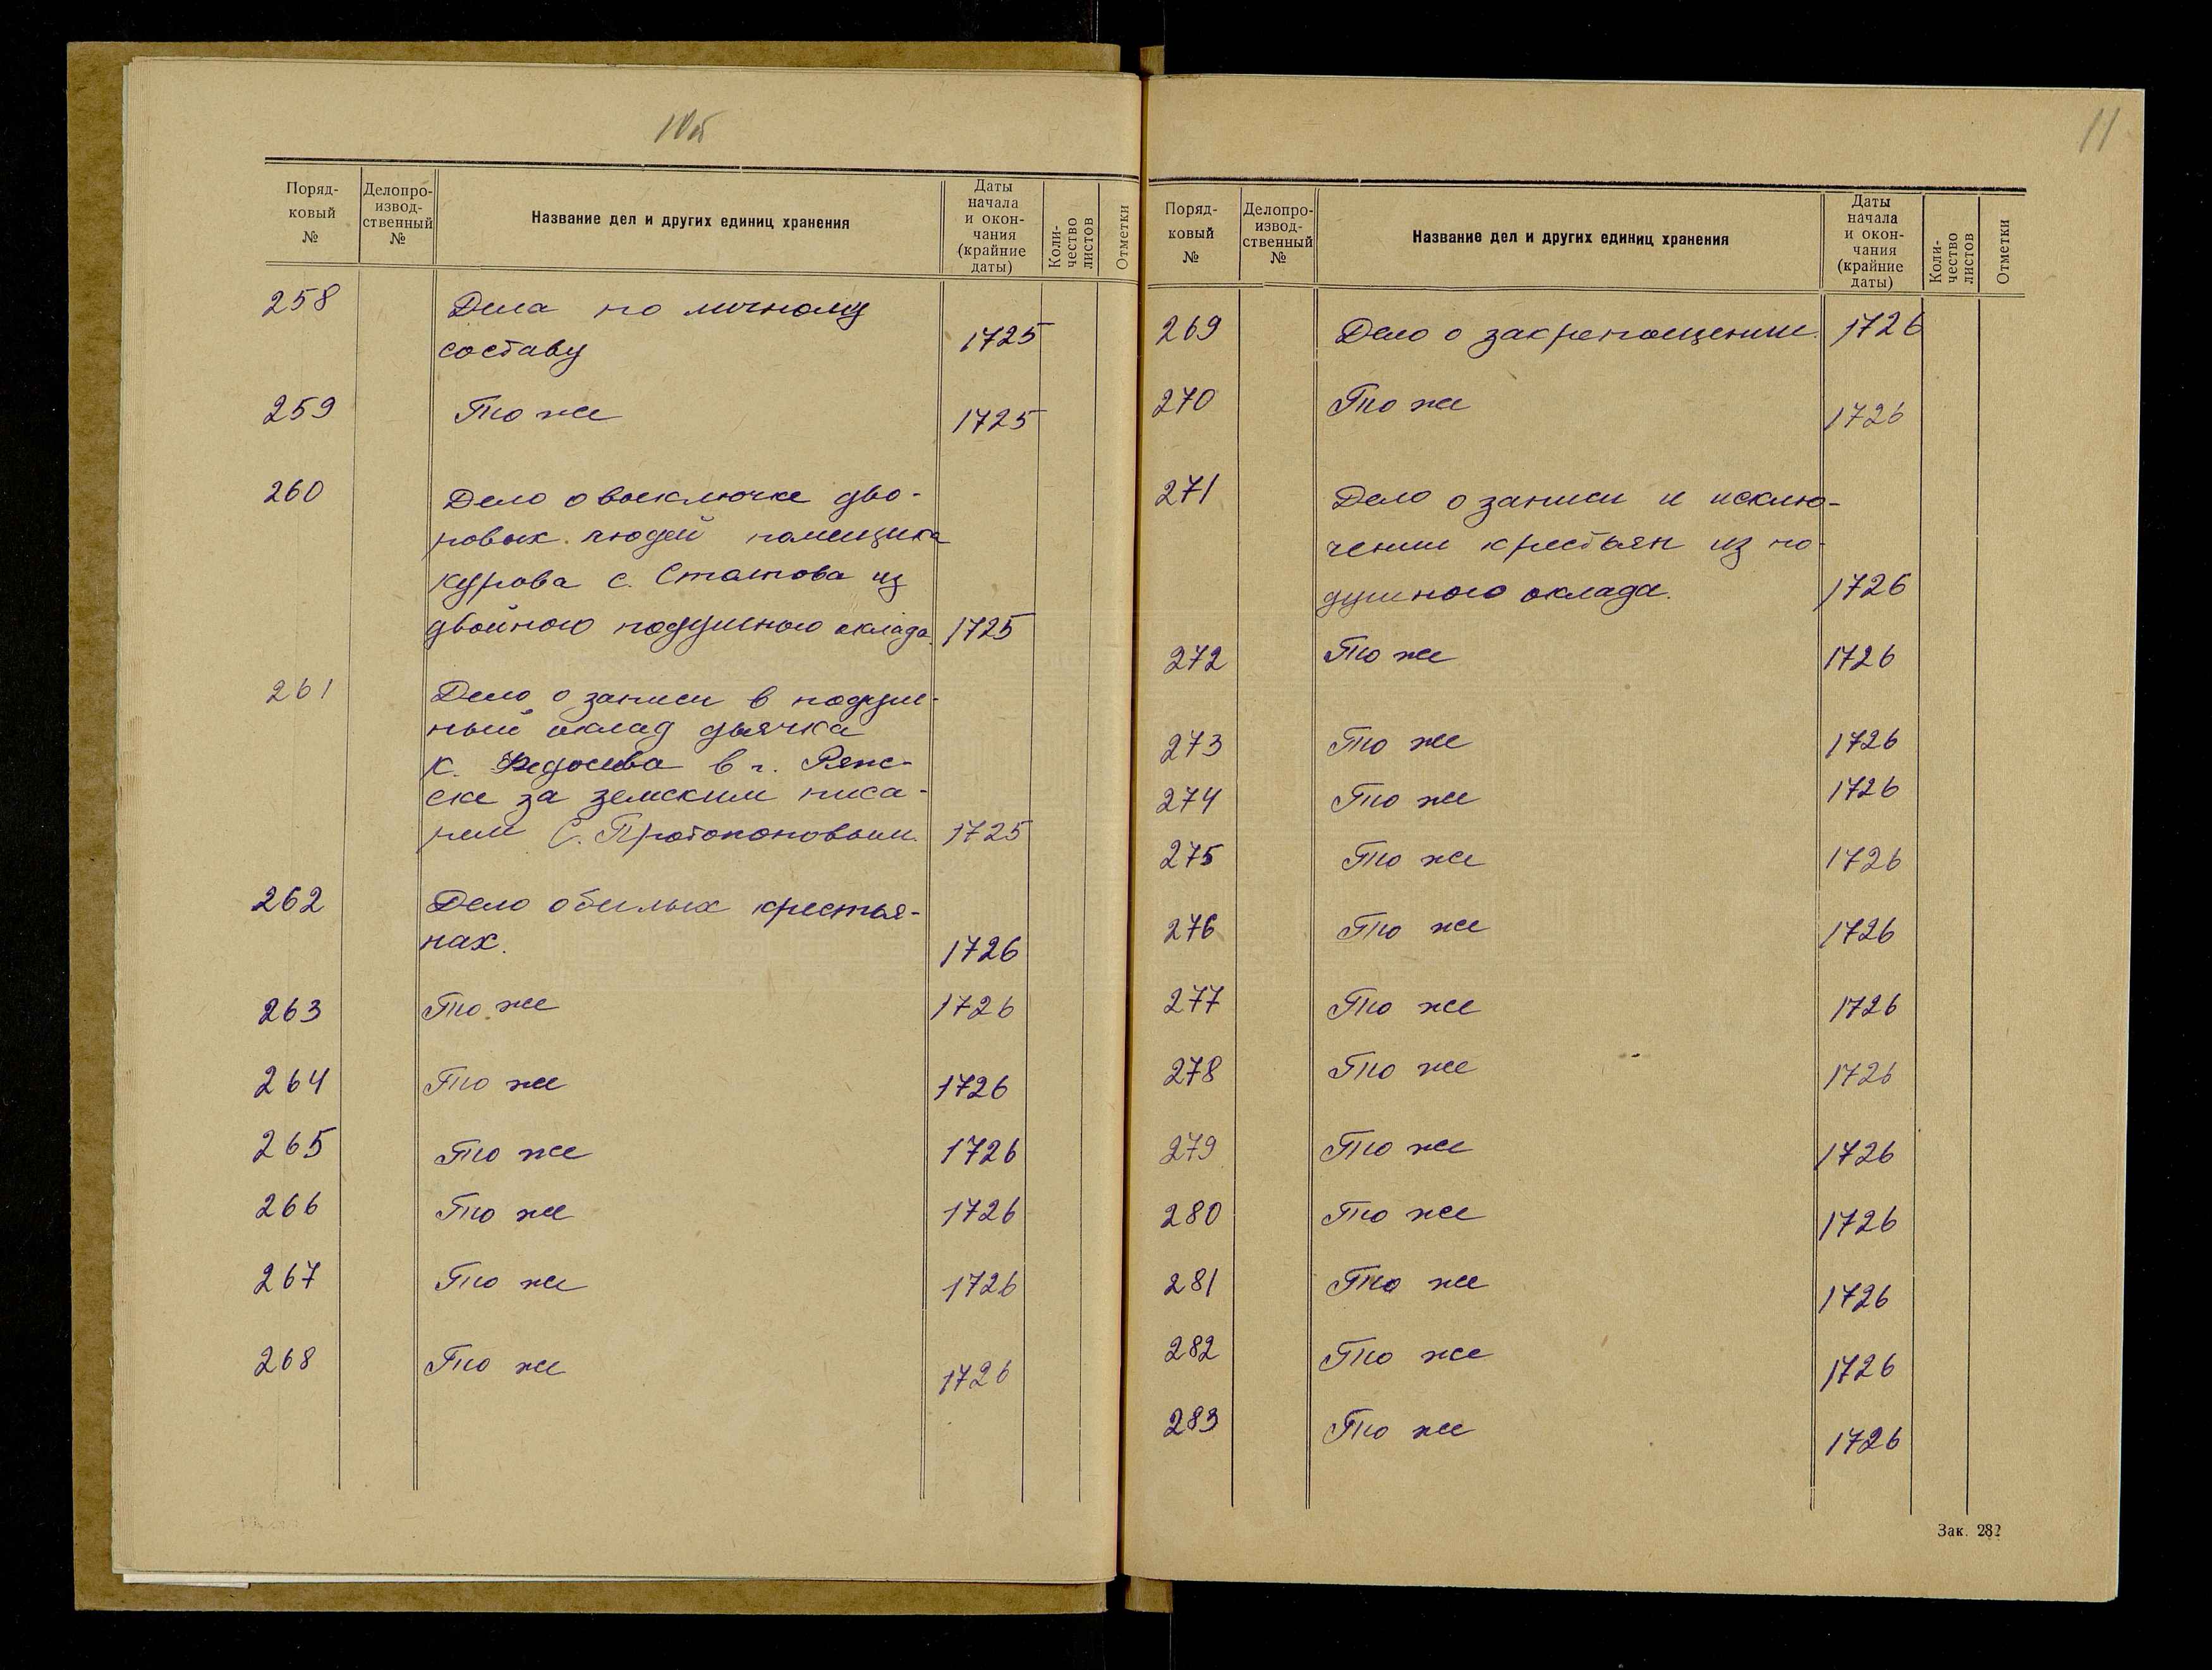 10об
Поряд-
ковый
№
Делопро-
извод-
ственный
№
Название дел и других единиц хранения
Даты
начала
и окон-
чания
(крайние
даты)
Коли-
чество
листов
Отметки
258 Дела по личному
составу 1725
259 То же 1725
260 Дело о выключке дво-
ровых людей помещика
курова с. Статова из
двойного подушного оклада. 1725
261 Дело о записи в подуш-
ный оклад дьячка
К. Федосева в г. Ряжс-
ске за земским писа-
рем С. Протопоповым. 1725
262 Дело о беглых крестья-
нах. 1726
263 То же 1726
264 То же 1726
265 То же 1726
266 То же 1726
267 То же 1726
268 То же 1726
11
Поряд-
ковый
№
Делопро-
извод-
ственный
№
Название дел и других единиц хранения
Даты
начала
и окон-
чания
(крайние
даты)
Коли-
чество
листов
Отметки
269 Дело о закрепощении. 1726
270 То же 1726
271 Дело о записи и исклю-
чении крестьян из по-
душного оклада. 1726
272 То же 1726
273 То же 1726
274 То же 1726
275 То же 1726
276 То же 1726
277 То же 1726
278 То же 1726
279 То же 1726
280 То же 1726
281 То же 1726
282 То же 1726
283 То же 1726
Зак. 282